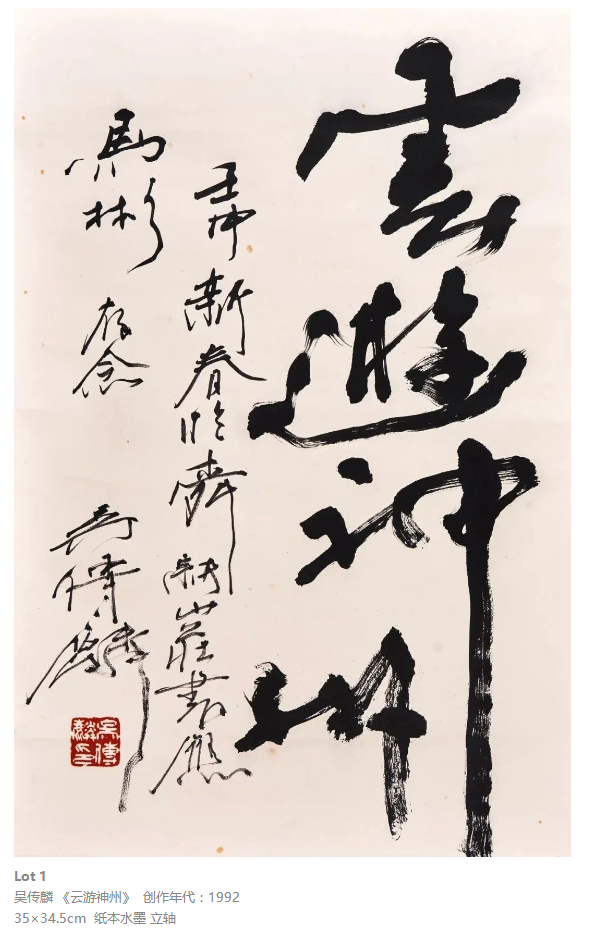 雲遊神州
壬申新春於山莊書應
馬彬存念
吴傳麟
吴傳麟印
Lot 1
吴传麟 《云游神州》 创作年代：1992
35×34.5cm 纸本水墨 立轴